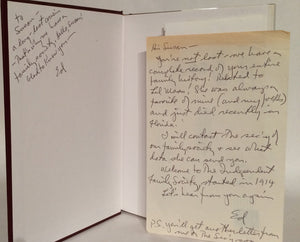 to
Susan -
a long lost cousin
family society
glad to have you -
Ed
Hi Susan -
You're not lost - we have a
complete record of your entire
family history! Related to
Lil Moas! She was always a
favorite of mine (and my folks)
and just died recently in
Florida!
I will contact the sec'y of
our family society & see what
data she can send you.
Welcome to The Independent
Family Society, started in 1914
Let's hear from you again
Ed
P.S. you'll get another letter from
me in the